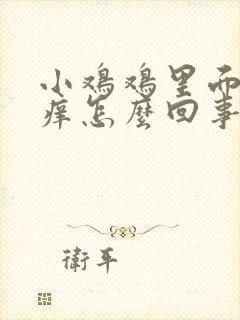 小鸡鸡里面
痒怎麼回事
衛平